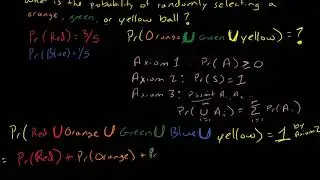 What is the probability of randomly selecting a
orange, green, or yellow ball?
Pr(Red) = 2/5
Pr(Orange ∪ Green ∪ yellow) = ?
Pr(Blue) = 1/5
Axiom 1: Pr(A) ≥ 0
Axiom 2: Pr(S) = 1
Axiom 3: Disjoint A₁, A₂...
Pr(∪ Aᵢ) = Σ Pr(Aᵢ)
Pr(Red ∪ Orange ∪ Green ∪ Blue ∪ yellow) = 1 by Axiom 2
= Pr(Red) + Pr(Orange) + Pr